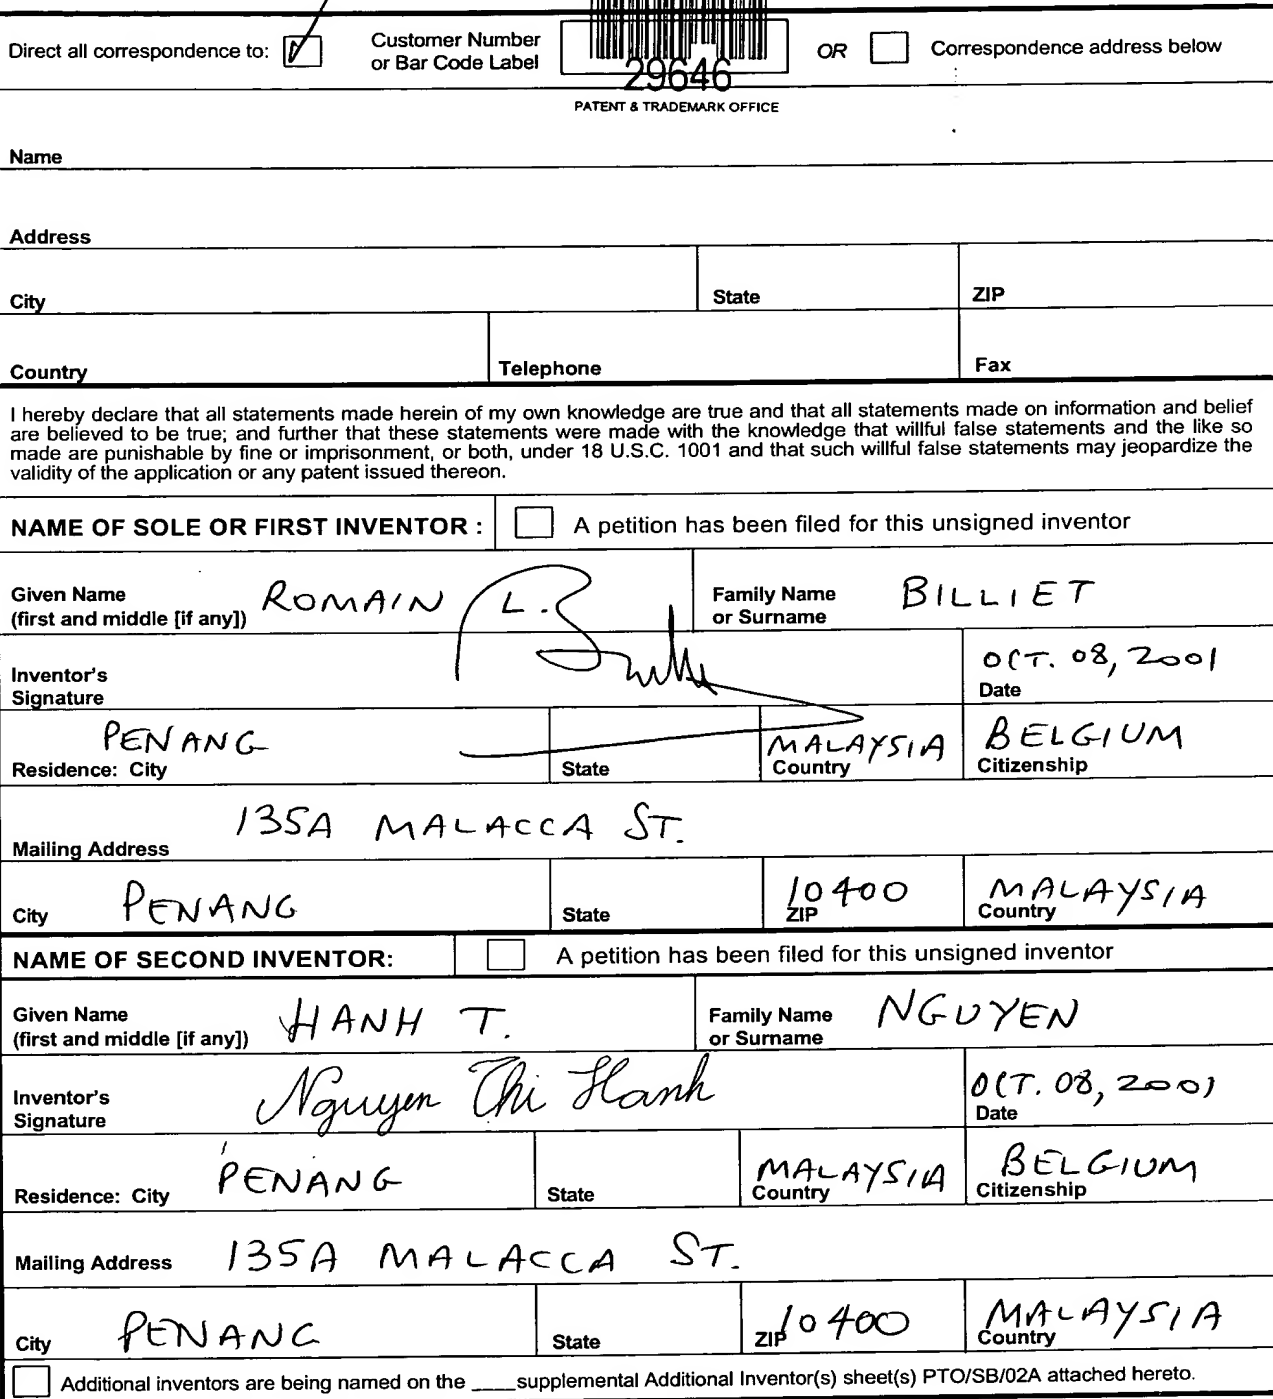 Direct all correspondence to: Customer Number or Bar Code Label 29646 OR Correspondence address below
PATENT & TRADEMARK OFFICE
Name
Address
City State ZIP
Country Telephone Fax
I hereby declare that all statements made herein of my own knowledge are true and that all statements made on information and belief
are believed to be true; and further that these statements were made with the knowledge that willful false statements and the like so
made are punishable by fine or imprisonment, or both, under 18 U.S.C. 1001 and that such willful false statements may jeopardize the
validity of the application or any patent issued thereon.
NAME OF SOLE OR FIRST INVENTOR : A petition has been filed for this unsigned inventor
Given Name (first and middle [if any]) ROMAIN L. Family Name or Surname BILLIET
Inventor's Signature OCT. 08, 2001 Date
PENANG Residence: City State MALAYSIA Country BELGIUM Citizenship
135A MALACCA ST.
Mailing Address
City PENANG State 10400 ZIP MALAYSIA Country
NAME OF SECOND INVENTOR: A petition has been filed for this unsigned inventor
Given Name (first and middle [if any]) HANH T. Family Name or Surname NGUYEN
Inventor's Signature Nguyen Thi Hanh OCT. 08, 2001 Date
Residence: City PENANG State MALAYSIA Country BELGIUM Citizenship
Mailing Address 135A MALACCA ST.
City PENANG State ZIP 10400 MALAYSIA Country
Additional inventors are being named on the ____supplemental Additional Inventor(s) sheet(s) PTO/SB/02A attached hereto.